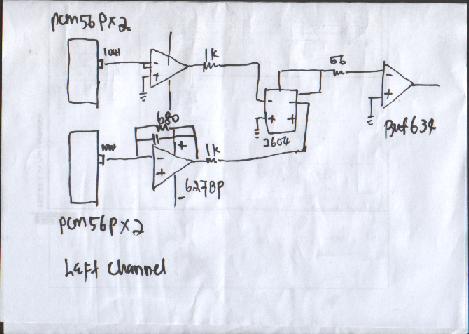 PCM56P×2
1K
56
680
2604
Buf634
1K
6270P
PCM56P×2
Left Channel